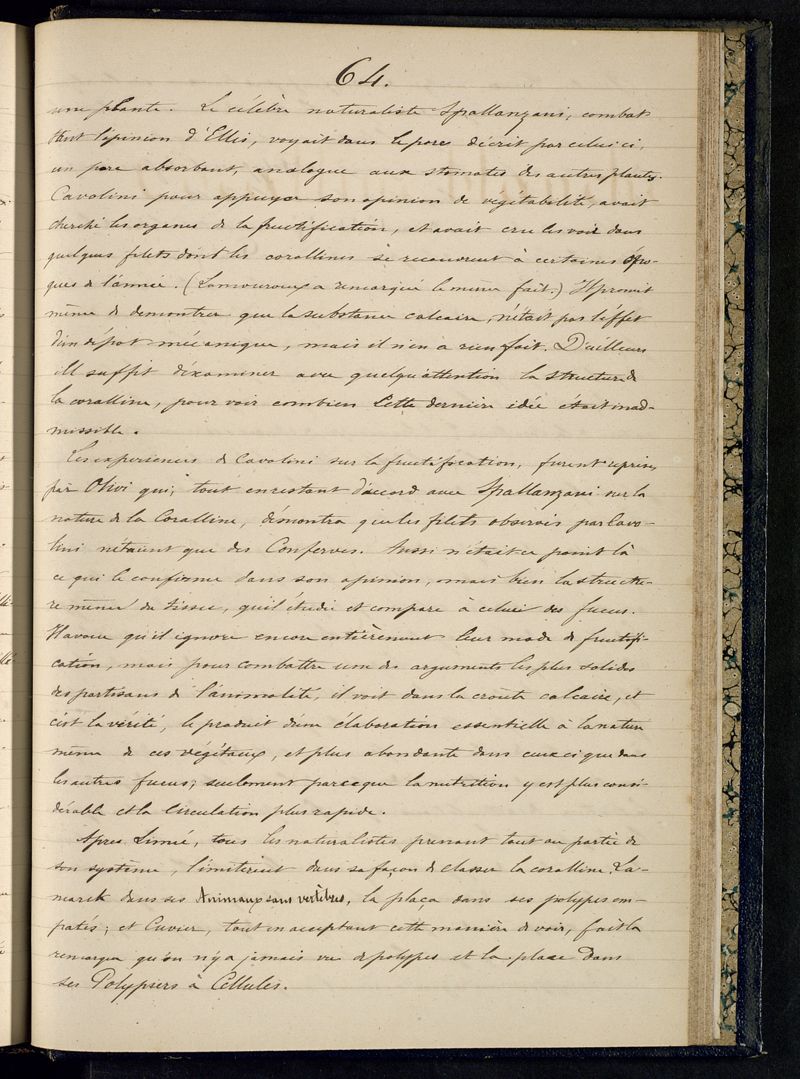 64.
une plante. Le célèbre naturaliste Spallanzani, combat-
tant l'opinion d'Ellis, voyait dans le pore décrit par celui ci,
un pore absorbant, analogue aux stomates des autres plantes.
Cavolini pour appuyer son opinion de végétabilité, avait
cherché les organes de la fructification, et avait cru les voir dans
quelques filets dont les corallines se recouvrent à certaines épo-
ques de l'année. (Lamouroux a remarqué le même fait.) Il promit
même de demontrer que la substance calcaire, n'était pas l'effet
d'un dépot mécanique, mais il n'en a rien fait. D'ailleurs
ill suffit d'examiner avec quelqu'attention la structure de
la coralline, pour voir combien cette dernière idée était inad-
missible.
Les experiences de Cavolini sur la fructification, furent reprises
par Olivi qui, tout en restant d'accord avec Spallanzani sur la
nature de la Coralline, démontra que les filets observés par Cavo-
lini n'étaient que des Conferves. Aussi n'était ce point là
ce qui le confirme dans son opinion, mais bien la structu-
re même du tissu, qu'il étudie et compare à celui des fucus.
Il avoue qu'il ignore encore entièrement leur mode de fructifi-
cation, mais pour combattre un des arguments les plus solides
des partisans de l'animalité, il voit dans la croute calcaire, et
c'est la vérité, le produit d'une élaboration essentielle à la nature
même de ces végétaux, et plus abondante dans ceux ci que dans
les autres fucus; seulement parceque la nutrition y est plus consi-
dérable et la circulation plus rapide.
Apres Linné, tous les naturalistes prenant tout ou partie de
son système, l'imitèrent dans sa façon de classer la coralline. La-
marck dans ses Animaux sans vertèbres, la plaça dans ses polypes em-
patés; et Cuvier, tout en acceptant cette manière de voir, fait la
remarque qu'on n'y a jamais vu de polypes et la place dans
ses Polypiers à Cellules.